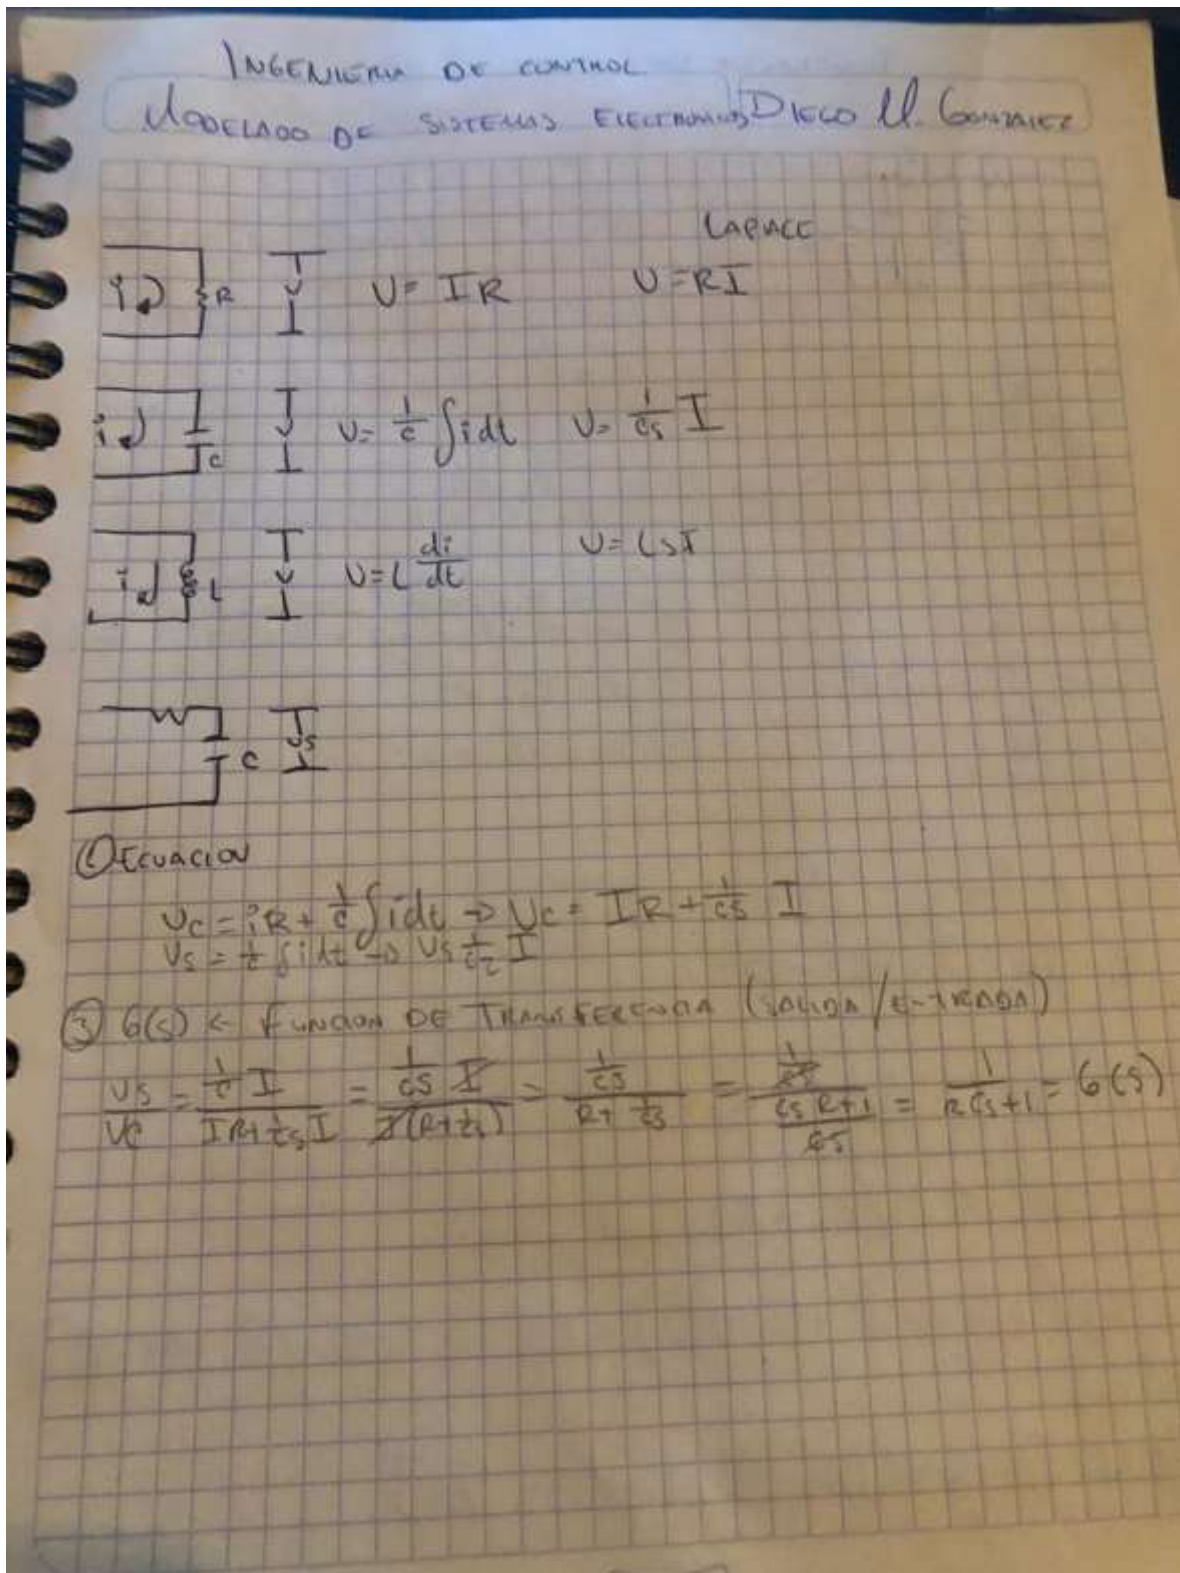 INGENIERIA DE CONTROL
MODELADO DE SISTEMAS ELECTRONICOS DIEGO M. GONZALEZ
LAPLACE
i R V V = IR V = RI
i C V V = 1/C ∫ i dt V = 1/CS I
i L V V = L di/dt V = LSI
C VS
① ECUACION
VC = iR + 1/C ∫ i dt → VC = IR + 1/CS I
VS = 1/C ∫ i dt → VS I
③ G(S) ← FUNCION DE TRANSFERENCIA (SALIDA / ENTRADA)
VS/VC = (1/C I)/(IR + 1/CS I) = (1/CS I)/(I(R + 1/CS)) = (1/CS)/(R + 1/CS) = (1/CS)/((CSR + 1)/CS) = 1/(RCS + 1) = G(S)